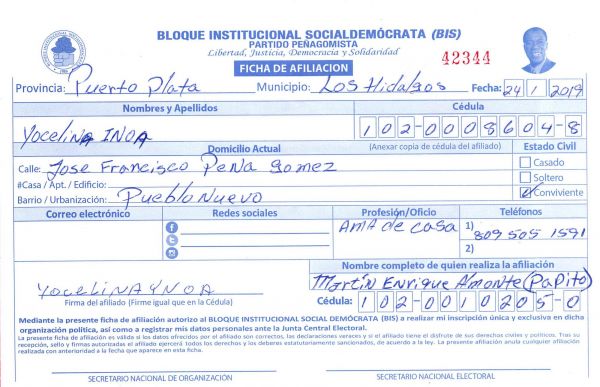 BLOQUE INSTITUCIONAL SOCIALDEMÓCRATA (BIS)
PARTIDO PEÑAGOMISTA
Libertad, Justicia, Democracia y Solidaridad
42344
FICHA DE AFILIACION
Provincia: Puerto Plata Municipio: Los Hidalgos Fecha: 24/1/2019
Nombres y Apellidos Cédula
Yocelina INOA 102-0008604-8
Domicilio Actual (Anexar copia de cédula del afiliado) Estado Civil
Calle: Jose Francisco Peña Gomez Casado
#Casa / Apt. / Edificio: Soltero
Barrio / Urbanización: Pueblo Nuevo Conviviente
Correo electrónico Redes sociales Profesión/Oficio Teléfonos
AMA de casa 1) 809 505 1591
2)
Nombre completo de quien realiza la afiliación
YOCELINA YNOA Martín Enrique Almonte (Papito)
Firma del afiliado (Firme igual que en la Cédula) Cédula: 102-0010205-0
Mediante la presente ficha de afiliación autorizo al BLOQUE INSTITUCIONAL SOCIAL DEMÓCRATA (BIS) a realizar mi inscripción única y exclusiva en dicha
organización política, así como a registrar mis datos personales ante la Junta Central Electoral.
La presente ficha de afiliación es válida si los datos ofrecidos por el afiliado son correctos, las declaraciones veraces y si el afiliado tiene el disfrute de sus derechos civiles y políticos. Tras su
recepción, sello y firmas autorizadas el afiliado ejercerá todos los derechos y los deberes estatutariamente sancionados, de acuerdo a la ley. La presente afiliación anula cualquier afiliación
realizada con anterioridad a la fecha que aparece en esta ficha.
SECRETARIO NACIONAL DE ORGANIZACIÓN SECRETARIO NACIONAL ELECTORAL